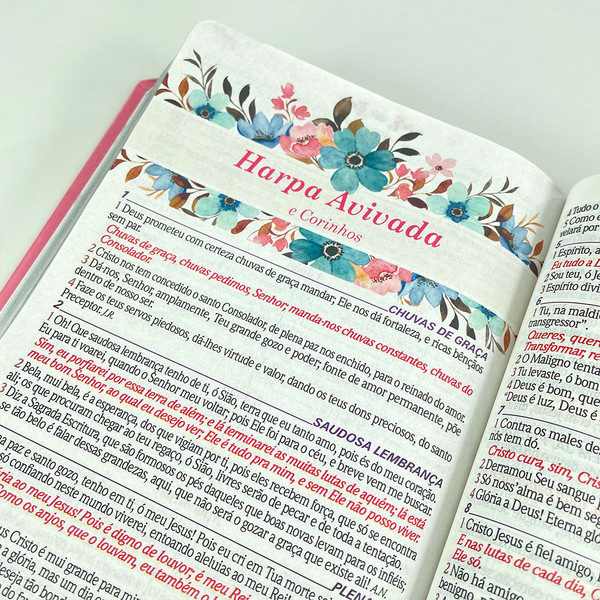 Harpa Avivada
e Corinhos
1
CHUVAS DE GRAÇA
1 Deus prometeu com certeza chuvas de graça mandar; Ele nos dá fortaleza, e ricas bênçãos
sem par.
Chuvas de graça, chuvas pedimos, Senhor; manda-nos chuvas constantes, chuvas do
Consolador.
2 Cristo nos tem concedido o santo Consolador, de plena paz nos enchido, para o reinado do amor.
3 Dá-nos, Senhor, amplamente, Teu grande gozo e poder; fonte de amor permanente, põe
dentro de nosso ser.
4 Faze os teus servos piedosos, dá-lhes virtude e valor, dando os teus dons preciosos, do santo
Preceptor. J.R.
2
SAUDOSA LEMBRANÇA
1 Oh! Que saudosa lembrança tenho de ti, ó Sião, terra que eu tanto amo, pois és do meu coração
Eu para ti voarei, quando o Senhor meu voltar; pois Ele foi para o céu, e breve vem me buscar.
Sim, eu porfiarei por essa terra de além; e lá terminarei as muitas lutas de aquém; lá está
meu bom Senhor, ao qual eu desejo ver; Ele é tudo pra mim, e sem Ele não posso viver.
2 Bela, mui bela, é a esperança, dos que vigiam por ti, pois eles recebem força, que só se encontra
ali; os que procuram chegar ao teu regaço, ó Sião, livres serão de pecar e de toda a tentação.
3 Diz a Sagrada Escritura, que são formosos os pés daqueles que boas novas levam para os infiéis;
se tão belo é falar dessas grandezas, aqui, que não será o gozar a graça que existe ali! A.N.
PLENA
a paz e santo gozo, tenho em ti, ó meu Jesus! Pois eu cri em Tua morte
só confiando neste mundo viverei, entoando aleluias ao meu
ria ao meu Jesus! Pois é digno de louvor; é meu Rei
como os anjos, que o louvam, eu também o
us Cristo é mui grande para mim
a glória, mas um dia
deseja tão bondoso
4 Tudo o
5 Como é
velará por
5
1 Espírito, a
Eu tudo a D
2 Sou teu, ó Je
3 Espírito divi
6
1 Tu, na maldi
transgressor".
Quieres, quere
Transformar, re
2 O Maligno tenta
3 Tu levaste, ó bom
4 Deus é bom, que
"Deus é luz, Deus é
7
1 Contra os males de
nós tem dó.
Cristo cura, sim, Cris
2 Derramou Seu sangue
3 Só nosś'alma é bem seg
4 Glória a Deus! Eterna glór
8
1 Cristo Jesus é fiel amigo,
E nas lutas de cada dia,
Ele só.
2 Não há amigo